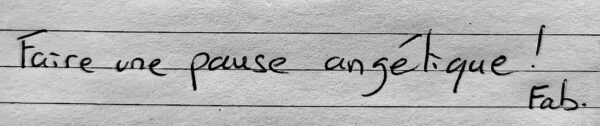 Faire une pause angélique !
Fab.